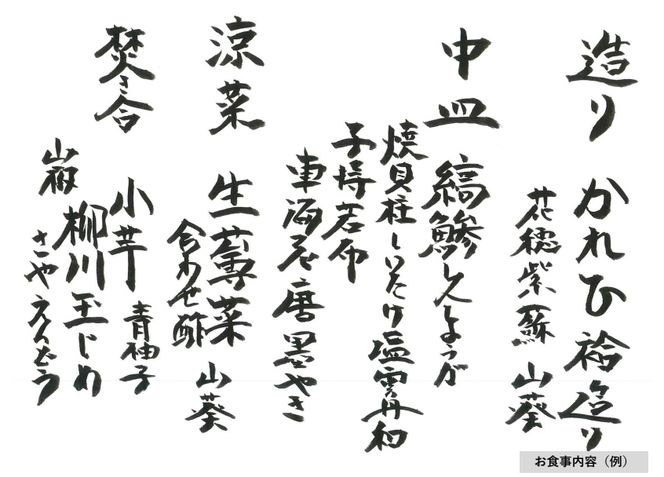 造り かれひ 袷造り
花穂紫蘇 山葵
中皿 縞鯵しんしょうが
焼貝柱しいたけ塩雲丹和
子持若布
車海老唐墨やき
涼菜 生蓴菜
合わせ酢 山葵
焚き合 小芋 青柚子
柳川玉じめ
山椒 さやえんどう
お食事内容（例）